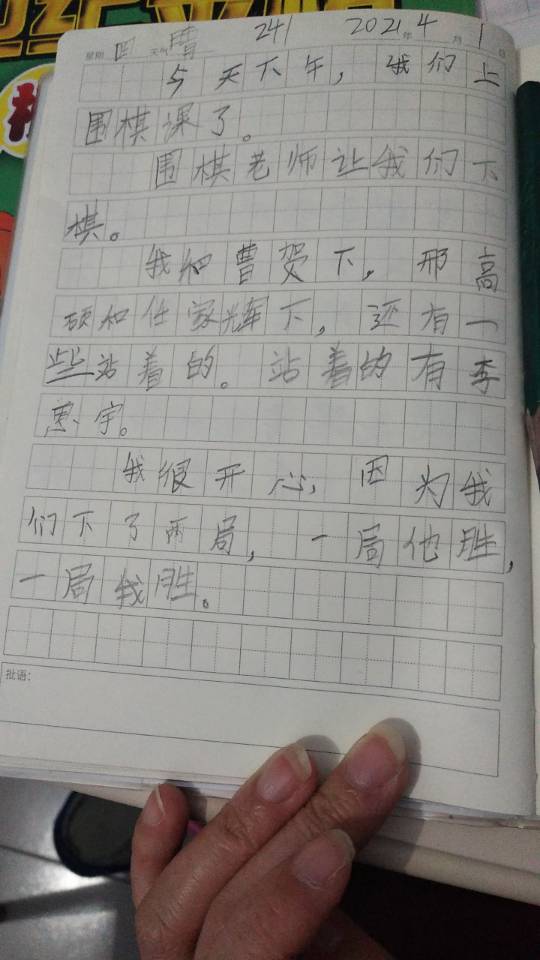 星期 四 天气 晴 241 2021年4月1日
今天下午，我们上
围棋课了。
围棋老师让我们下
棋。
我和曹贺下，邢高
硕和任家辉下，还有一
些站着的。站着的有李
思宇。
我很开心，因为我
们下了两局，一局他胜，
一局我胜。
批语：